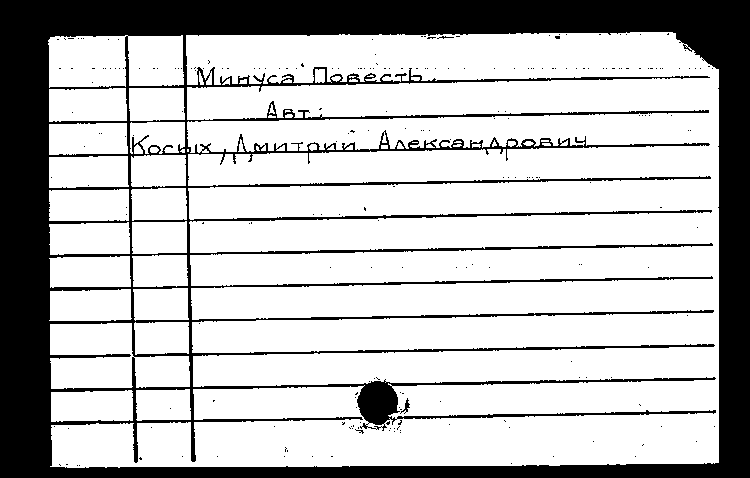 Минуса Повесть.
Авт.:
Косых, Дмитрий Александрович